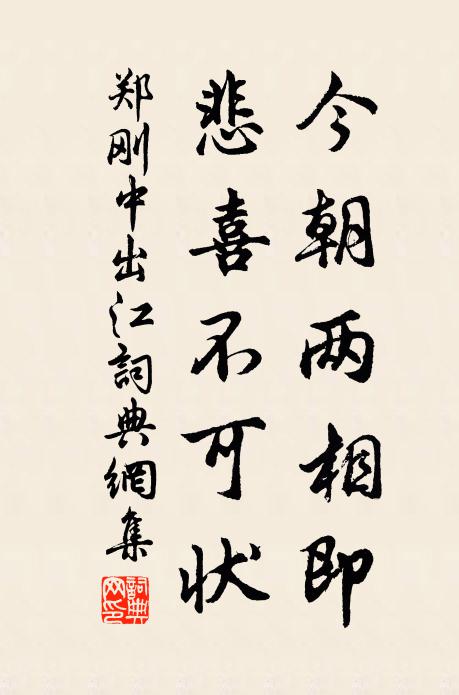 今朝两相即
悲喜不可状
郑刚中出江詞典網集
詞典网印